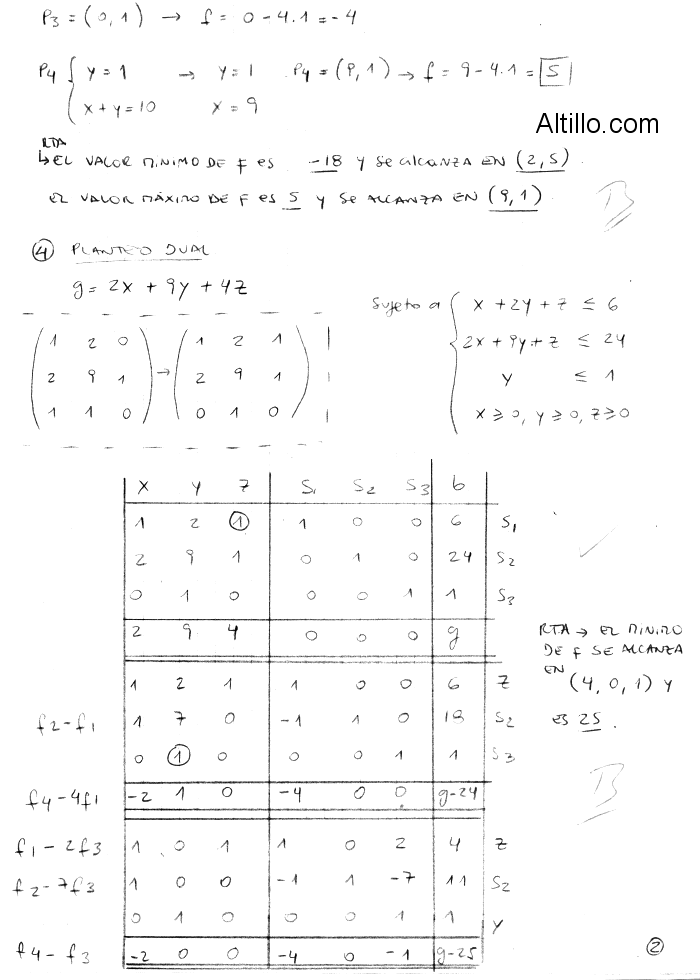 P3 = (0,1) → f = 0 - 4.1 = -4
P4 { y = 1 → y = 1 P4 = (9,1) → f = 9 - 4.1 = 5
x + y = 10 x = 9
Altillo.com
RTA
↳ EL VALOR MINIMO DE f es -18 y se alcanza en (2,5).
EL VALOR MÁXIMO DE F es 5 y se alcanza en (9,1)
B
④ PLANTEO DUAL
g = 2x + 9y + 4z
Sujeto a { x + 2y + z ≤ 6
2x + 9y + z ≤ 24
y ≤ 1
x ≥ 0, y ≥ 0, z ≥ 0
1 2 0 → 1 2 1
2 9 1 2 9 1
1 1 0 0 1 0
x y z S1 S2 S3 b
1 2 1 1 0 0 6 S1
2 9 1 0 1 0 24 S2
0 1 0 0 0 1 1 S3
2 9 4 0 0 0 g
1 2 1 1 0 0 6 z
f2-f1 1 7 0 -1 1 0 18 S2
0 1 0 0 0 1 1 S3
f4-4f1 -2 1 0 -4 0 0 g-24
f1-2f3 1 0 1 1 0 2 4 z
f2-7f3 1 0 0 -1 1 -7 11 S2
0 1 0 0 0 1 1 y
f4-f3 -2 0 0 -4 0 -1 g-25
RTA → EL MINIMO
DE f SE ALCANZA
EN (4,0,1) y
es 25.
B
②